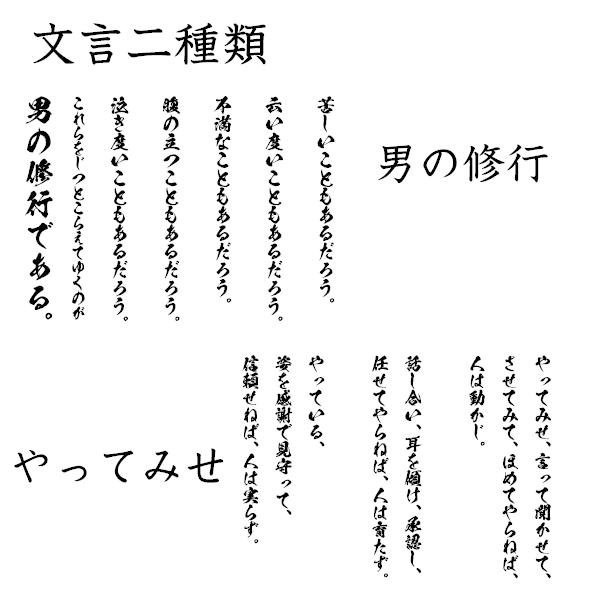 文言二種類
男の修行
苦しいこともあるだろう。
云い度いこともあるだろう。
不満なこともあるだろう。
腹の立つこともあるだろう。
泣き度いこともあるだろう。
これらをじつとこらえてゆくのが
男の修行である。
やってみせ
やってみせ、言って聞かせて、
させてみて、ほめてやらねば、
人は動かじ。
話し合い、耳を傾け、承認し、
任せてやらねば、人は育たず。
やっている、
姿を感謝で見守って、
信頼せねば、人は実らず。